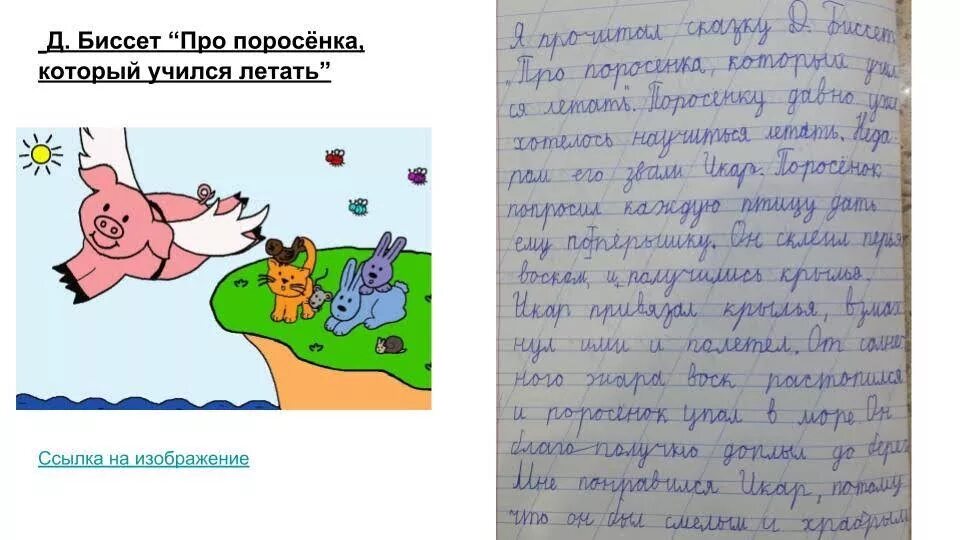 Д. Биссет “Про поросёнка,
который учился летать”
Ссылка на изображение
Я прочитал сказку Д. Биссет
„Про поросенка, который учил
ся летать". Поросенку давно уже
хотелось научиться летать. Неда-
ром его звали Икар. Поросёнок
попросил каждую птицу дать
ему по пёрышку. Он склеил перья
воском, и получились крылья.
Икар привязал крылья, взмах
нул ими и полетел. От солнеч
ного жара воск растопился
и поросёнок упал в море. Он
благополучно доплыл до берег
Мне понравился Икар, потому
что он был смелым и храбрым